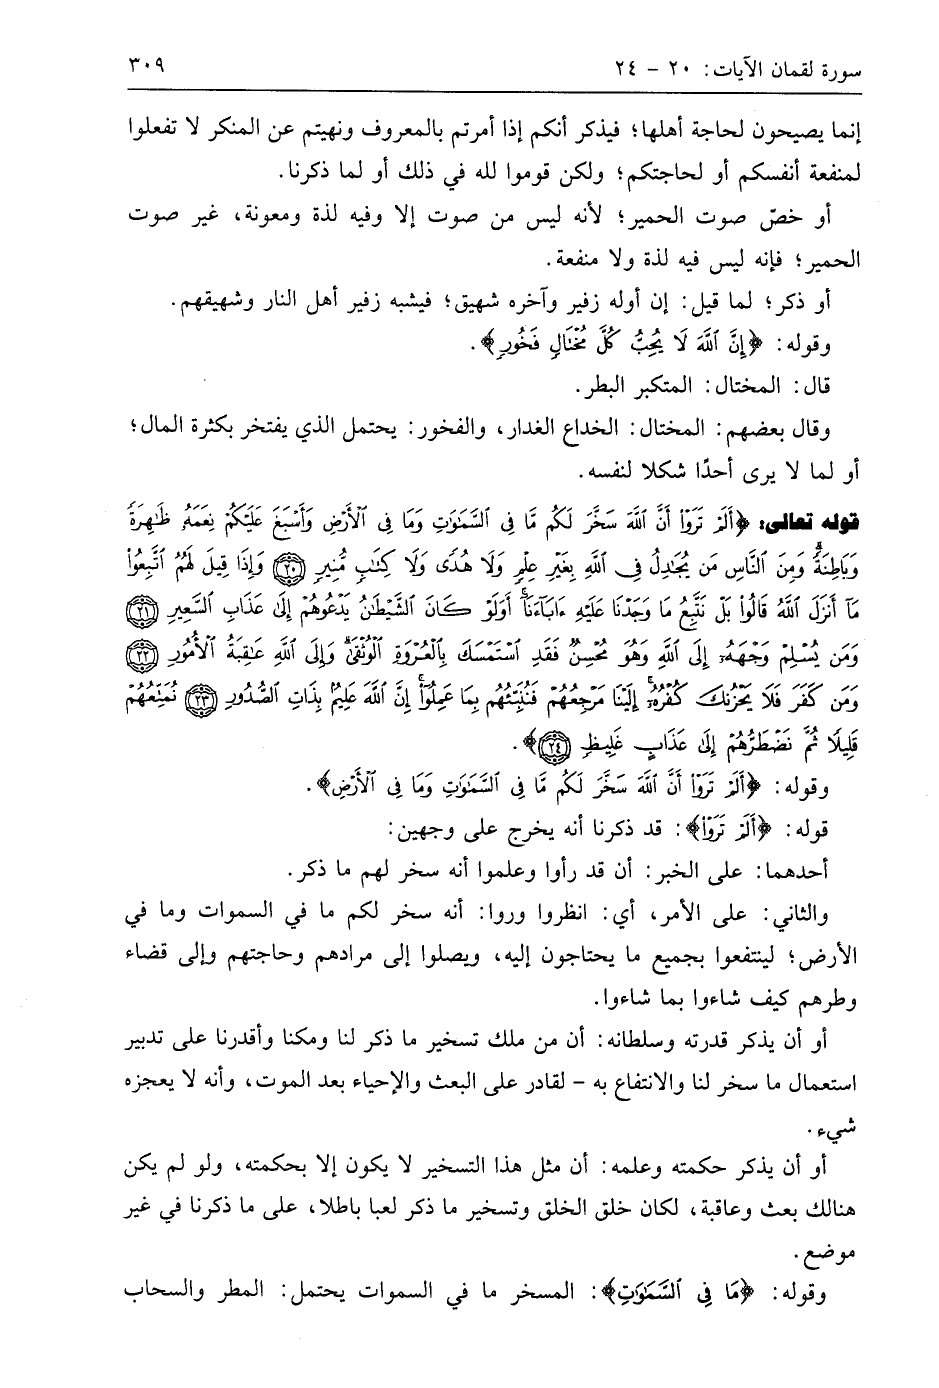 سورة لقمان الآيات: ٢٠ - ٢٤ ٣٠٩
إنما يصيحون لحاجة أهلها؛ فيذكر أنكم إذا أمرتم بالمعروف ونهيتم عن المنكر لا تفعلوا
لمنفعة أنفسكم أو لحاجتكم؛ ولكن قوموا لله في ذلك أو لما ذكرنا.
أو خصّ صوت الحمير؛ لأنه ليس من صوت إلا وفيه لذة ومعونة، غير صوت
الحمير؛ فإنه ليس فيه لذة ولا منفعة.
أو ذكر؛ لما قيل: إن أوله زفير وآخره شهيق؛ فيشبه زفير أهل النار وشهيقهم.
وقوله: ﴿إِنَّ ٱللَّهَ لَا يُحِبُّ كُلَّ مُخْتَالٍ فَخُورٍ﴾.
قال: المختال: المتكبر البطر.
وقال بعضهم: المختال: الخداع الغدار، والفخور: يحتمل الذي يفتخر بكثرة المال؛
أو لما لا يرى أحدًا شكلا لنفسه.
قوله تعالى: ﴿أَلَمْ تَرَوْا۟ أَنَّ ٱللَّهَ سَخَّرَ لَكُم مَّا فِى ٱلسَّمَـٰوَٰتِ وَمَا فِى ٱلْأَرْضِ وَأَسْبَغَ عَلَيْكُمْ نِعَمَهُۥ ظَـٰهِرَةً
وَبَاطِنَةً ۗ وَمِنَ ٱلنَّاسِ مَن يُجَـٰدِلُ فِى ٱللَّهِ بِغَيْرِ عِلْمٍ وَلَا هُدًى وَلَا كِتَـٰبٍ مُّنِيرٍ ﴿٢٠﴾ وَإِذَا قِيلَ لَهُمُ ٱتَّبِعُوا۟
مَآ أَنزَلَ ٱللَّهُ قَالُوا۟ بَلْ نَتَّبِعُ مَا وَجَدْنَا عَلَيْهِ ءَابَآءَنَآ ۚ أَوَلَوْ كَانَ ٱلشَّيْطَـٰنُ يَدْعُوهُمْ إِلَىٰ عَذَابِ ٱلسَّعِيرِ ﴿٢١﴾
وَمَن يُسْلِمْ وَجْهَهُۥٓ إِلَى ٱللَّهِ وَهُوَ مُحْسِنٌ فَقَدِ ٱسْتَمْسَكَ بِٱلْعُرْوَةِ ٱلْوُثْقَىٰ ۗ وَإِلَى ٱللَّهِ عَـٰقِبَةُ ٱلْأُمُورِ ﴿٢٢﴾
وَمَن كَفَرَ فَلَا يَحْزُنكَ كُفْرُهُۥٓ ۚ إِلَيْنَا مَرْجِعُهُمْ فَنُنَبِّئُهُم بِمَا عَمِلُوٓا۟ ۚ إِنَّ ٱللَّهَ عَلِيمٌۢ بِذَاتِ ٱلصُّدُورِ ﴿٢٣﴾ نُمَتِّعُهُمْ
قَلِيلًا ثُمَّ نَضْطَرُّهُمْ إِلَىٰ عَذَابٍ غَلِيظٍ ﴿٢٤﴾﴾.
وقوله: ﴿أَلَمْ تَرَوْا۟ أَنَّ ٱللَّهَ سَخَّرَ لَكُم مَّا فِى ٱلسَّمَـٰوَٰتِ وَمَا فِى ٱلْأَرْضِ﴾.
قوله: ﴿أَلَمْ تَرَوْا۟﴾: قد ذكرنا أنه يخرج على وجهين:
أحدهما: على الخبر: أن قد رأوا وعلموا أنه سخر لهم ما ذكر.
والثاني: على الأمر، أي: انظروا وروا: أنه سخر لكم ما في السموات وما في
الأرض؛ لينتفعوا بجميع ما يحتاجون إليه، ويصلوا إلى مرادهم وحاجتهم وإلى قضاء
وطرهم كيف شاءوا بما شاءوا.
أو أن يذكر قدرته وسلطانه: أن من ملك تسخير ما ذكر لنا ومكنا وأقدرنا على تدبير
استعمال ما سخر لنا والانتفاع به - لقادر على البعث والإحياء بعد الموت، وأنه لا يعجزه
شيء.
أو أن يذكر حكمته وعلمه: أن مثل هذا التسخير لا يكون إلا بحكمته، ولو لم يكن
هنالك بعث وعاقبة، لكان خلق الخلق وتسخير ما ذكر لعبا باطلا، على ما ذكرنا في غير
موضع.
وقوله: ﴿مَا فِى ٱلسَّمَـٰوَٰتِ﴾: المسخر ما في السموات يحتمل: المطر والسحاب